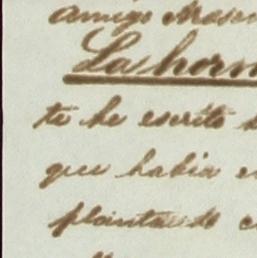 amigo
La horm
te he escrito
que habia
plantando